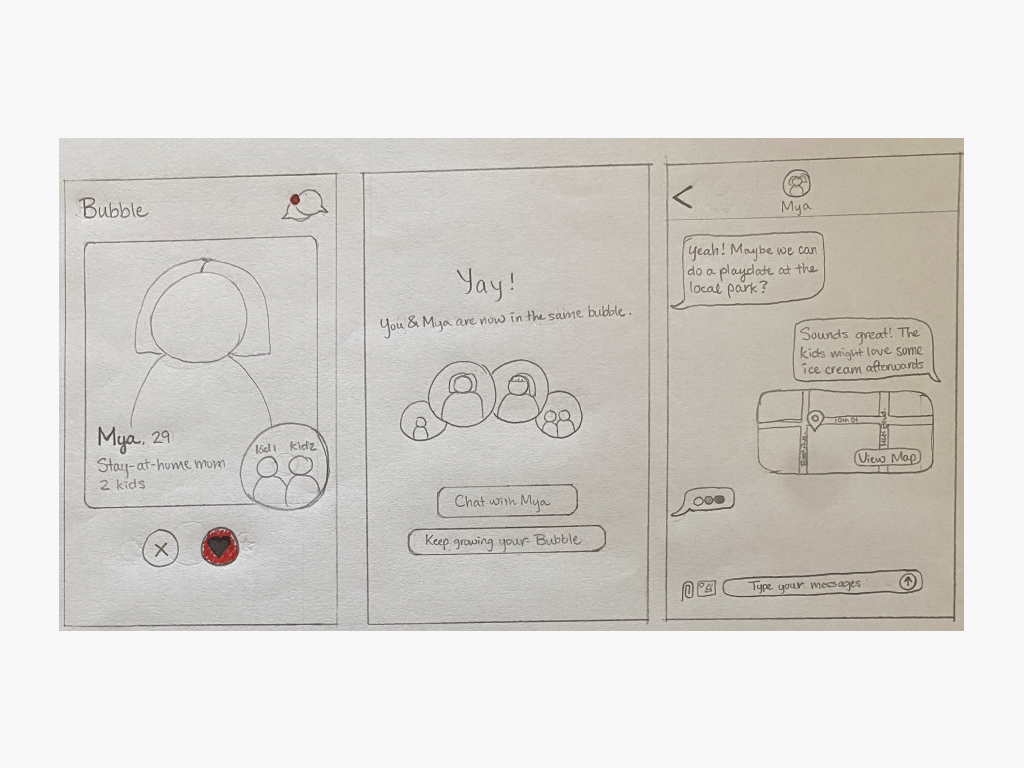 Bubble
kid1 kid2
Mya, 29
Stay-at-home mom
2 kids
Yay!
You & Mya are now in the same bubble.
Chat with Mya
Keep growing your Bubble
Mya
Yeah! Maybe we can
do a playdate at the
local park?
Sounds great! The
kids might love some
ice cream afterwards
10th St
View Map
Type your messages